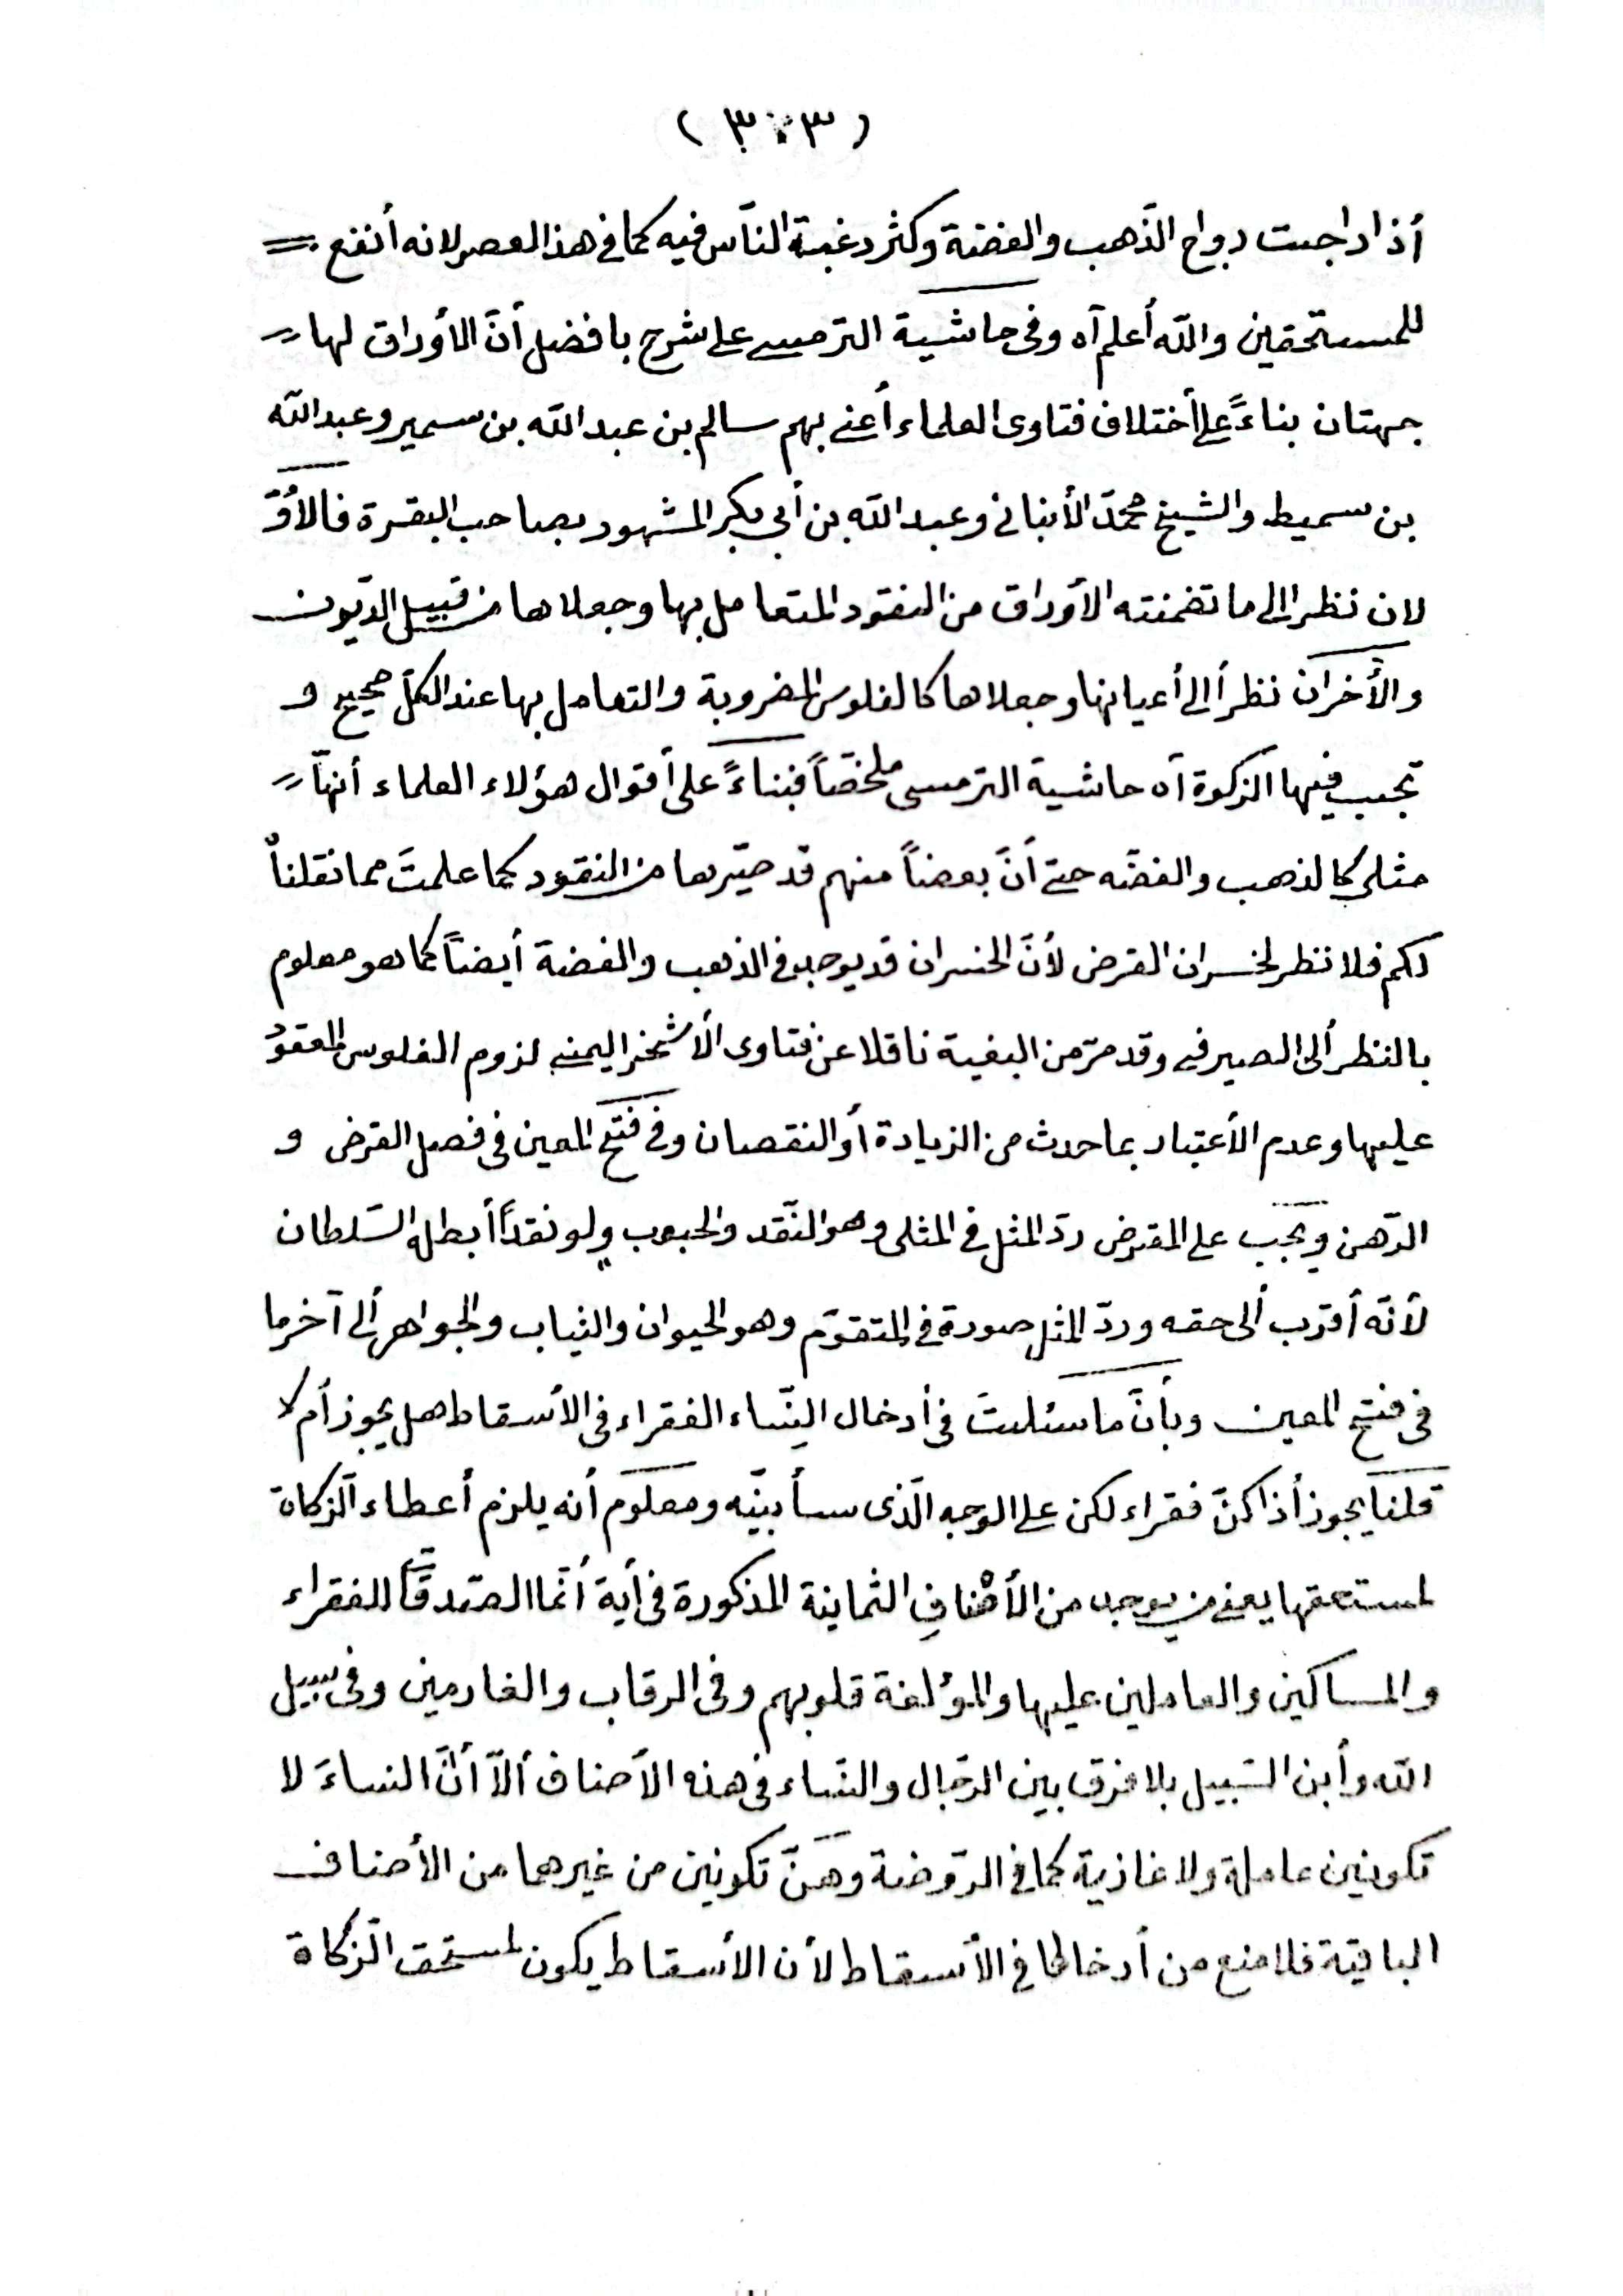 (٣٠٣)
أذا راجت رواج الذّهب والفضة وكثر رغبة النّاس فيه كما فى هذا العصر لانه أنفع
للمستحقين والله أعلم آه وفى حاشية الترمسى على شرح بافضل أنّ الأوراق لها
جهتان بناءً على أختلاف فتاوى العلماء أعنى بهم سالم بن عبد الله بن سمير وعبد الله
بن سميط والشيخ محمّد الأنبانى وعبد الله بن أبى بكر المشهور بصاحب البقرة فالأوّ
لان نظرا الى ما تضمنته الأوراق من النقود المتعامل بها وجعلاها من قبيل الدّيون
والأخران نظراً الى أعيانها وجعلاها كالفلوس المضروبة والتعامل بها عند الكلّ صحيح و
تجب فيها الزكوة آه حاشية الترمسى ملخصّاً فبناءً على أقوال هؤلاء العلماء أنهاّ
مثلى كالذهب والفضّه حتى أنّ بعضاً منهم قد صيّرها من النقود كما علمتَ مما نقلناْ
لكم فلا نظر لخسران القرض لأنّ الخسران قد يوجد فى الذهب والفضة أيضاً كما هو معلوم
بالنظر ألى الصيرفى وقد مرّ من البغية ناقلا عن فتاوى الأشخر اليمنى لزوم الفلوس المعقوْ
عليها وعدم الأعتبار بما حدث من الزيادة أو النقصان وفى فتح المعين فى فصل القرض و
الرّهن ويجب على المقترض ردّ المثل فى المثلى وهو النّقد والحبوب ولو نقداً أبطله السّلطان
لأنّه أقرب ألى حقه وردّ المثل صورة فى المتقوّم وهو الحيوان والثياب والجواهر ألى آخر ما
فى فتح المعين وبأنّ ما سئلتَ فى أدخال النّساء الفقراء فى الأسقاط هل يجوز أم لا
قلنا يجوز أذا كنّ فقراء لكن على الوجه الّذى سأبيّنه ومعلوم أنه يلزم أعطاء الزّكاة
لمستحقها يعنى من يوجد من الأصْنافِ الثمانية المذكورة فى أية أنّما الصّدقاّت للفقراء
والمساكين والعاملين عليها والمؤلفة قلوبهم وفى الرقاب والغارمين وفى سبيل
الله وأبن السّبيل بلا فرق بين الرّجال والنّساء فى هذه الأصناف ألاّ أنّ النساءَ لا
تكونين عاملة ولا غازية كما فى الرّوضة وهنّ تكونين من غيرهما من الأصناف
الباقيّة فلا منع من أدخالها فى الأسقاط لأن الأسقاط يكون لمستحق الزّكاة